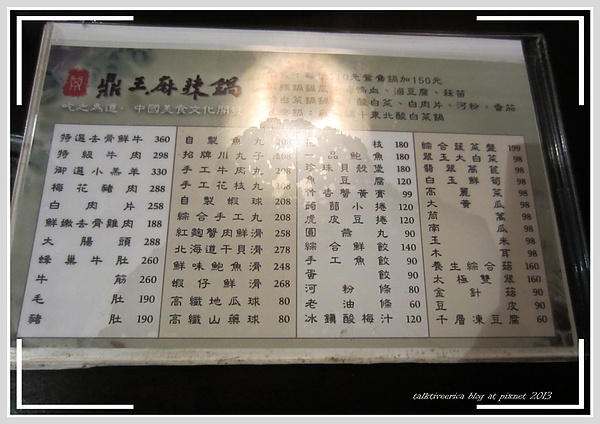 鼎王麻辣鍋
吃之為道．中國美食文化開
0元鴛鴦鍋加150元
鴨血、滷豆腐、辣苗
酸白菜、白肉片、河粉、番茄
東北酸白菜鍋
特選去骨鮮牛 360
特級牛肉 298
御選小羔羊 330
梅花豬肉 288
白肉片 258
鮮嫩去骨雞肉 188
大腸頭 288
蜂巢牛肚 260
牛筋 260
毛肚 190
豬肚 190
自製魚丸 208
招牌川丸子 208
手工牛肉丸 208
手工花枝丸 208
自製蝦球 208
綜合手工丸 208
紅麴蟹肉鮮滑 258
北海道干貝滑 278
鮮味鮑魚滑 248
蝦仔鮮滑 248
高纖地瓜球 80
高纖山藥球 80
枝 180
品鮑魚 180
珍珠貝殼堡 180
魚豆腐 120
杏蟹黃膏 99
蒟蒻小捲 120
虎皮豆捲 120
圓燕丸 90
綜合鮮餃 140
手工魚餃 90
蛋餃 90
河粉條 80
老油條 60
冰鎮酸梅汁 120
綜合蔬菜盤 199
翠玉大白菜 98
翡翠萵苣 98
白玉鮮菇 98
高麗菜 98
大黃瓜 98
茼蒿 98
南瓜 98
玉米 98
木耳 98
養生綜合菇 160
太極雙翠 160
金針菇 90
豆皮 90
千層凍豆腐 60
talktiveerica blog at pixnet 2013